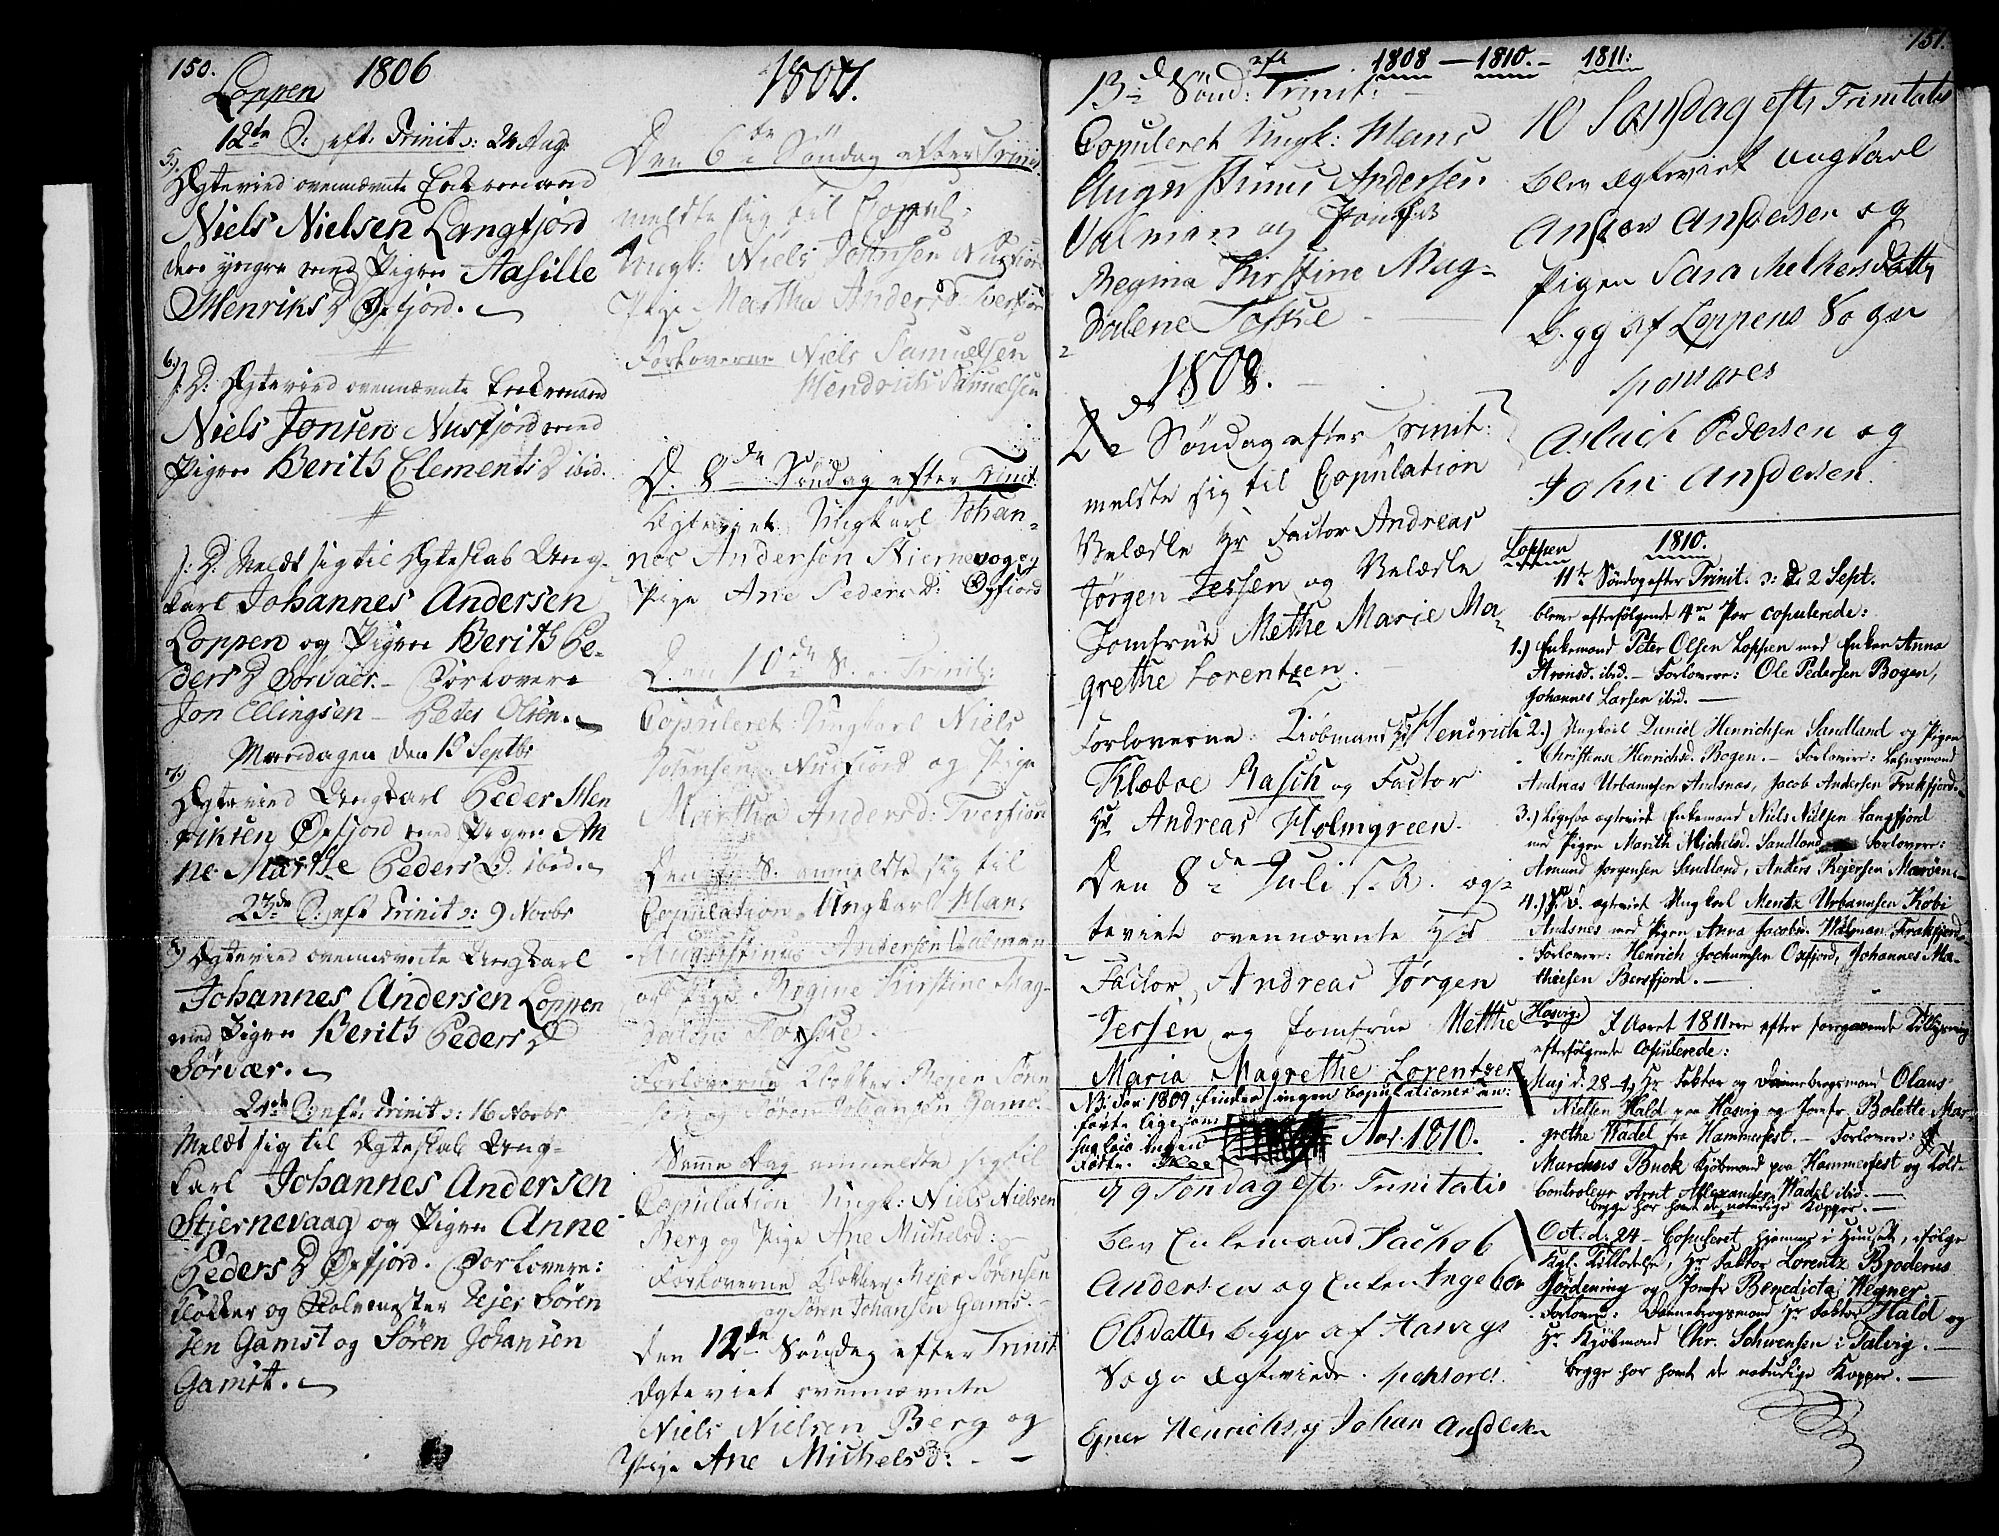 150.
1806
Loppen
12te S: eft. Trinit: 24 Aug.
5.) Ægteviед ovennævnte Enkemand
Niels Nielsen Langfjord
den yngre med Pigen Aasille
Henriks D Øxfjord.
6.)
s. D: Ægtevied ovennævnte Enkemand
Niels Jonsen Nusfjord med
Pigen Berith Clements D ibid.
s: D: Meldt sig til Ægteskab Ung-
karl Johannes Andersen
Loppen og Pigen Berith Pe-
ders D Sørvær. Forlovere
Jon Ellingsen - Peder Olsen.
Mandagen den 15 Septbr
7.)
Ægtevied Ungkarl Peder Hen
riksen Øxfjord med Pigen An
ne Marthe Peders D. ibid.
23de S: eft Trinit: 9 Novbr
8.) Ægtevied ovennævnte Ungkarl
Johannes Andersen Loppen
med Pigen Berith Peders D
Sørvær.
24de S: eft: Trinit: 16 Novbr
Meldt sig til Ægteskab Ung-
karl Johannes Andersen
Stjernevaag og Pigen Anne
Peders D Øxfjord. Forlovere:
Klokker og Skolemester Rejer Sören
sen Gamst og Sören Johansen
Gamst.
1807.
Den 6te Söndag efter Trinit
meldte sig til Copul:
Ungk: Niels Johnsen Nusfiord
Pige Martha Andersd: Tverfiord
Forloverne Niels Samuelsen
Hendrich Samuelsen
D. 8de Söndag efter Trinit:
Ægteviet Ungkarl Johan-
nes Andersen Stiernevog og
Pige Ane Pedersd: Oxfiord
Den 10de S. e. Trinit:
Copuleret Ungkarl Niels
Johnsen Nusfiord og Pige
Martha Andersd: Tverfiord
Den S. anmeldte sig til
Copulation Ungkarl Hans
Augustinus Andersen Valman
og Pige Regine Kirstine Mag-
dalene Foshie
Forloverne Klokker Rejer Sören
sen og Sören Johansen Gams.
Samme Dag anmeldte sig til
Copulation Ungk: Niels Nielsen
Berg og Pige Ane Michelsd:
Forloverne Klokker Rejer Sörensen
og Sören Johansen Gams.
Den 12te Söndag efter Trinit
Ægteviet ovennævnte
Niels Nielsen Berg og
Pige Ane Michelsd: -
1808 - 1810. - 1811:
151.
13de Sönd: eft Trinit:
Copuleret Ungk: Hans
Augustinus Andersen
Valman og
Regina Kirstine Mag-
dalene Foshie
1808.
2de Söndag efter Trinit:
meldte sig til Copulation
Velædle Hr Factor Andreas
Jørgen Jessen og Velædle
Jomfrue Methe Marie Ma-
grethe Lorentzen.
Forloverne: Kiöbmand Hr Hendrich
Klæboe Rasch og Factor
Hr Andreas Holmgreen.
Den 8de Juli blev æg-
teviet ovennævnte Hr
Factor Andreas Jørgen
Jersen og Jomfrue Metthe
Maria Magrethe Lorentzen
NB: For 1809 findes ingen Copulationer an:
förte ligesom
heller ingen
Födte. Klee
Aar 1810.
9 Söndag eft: Trinitatis
blev Enkemand Jachob
Andersen og Enken Ingebor
Olsdatter begge af Hasvigs
Sogn Ægteviede. sponsores.
Egner Henrichs og Johan Andersen
10 Söndag eft Trinitatis
blev Ægteviet ungkarl
Anders Andersen og
Pigen Sara Mekkersdatter
begge af Loppens Sogn
sponsores
Aslach Pedersen og
John Andersen.
Loppen 1810.
11te Söndag efter Trinit. : d. 2 Sept.
bleve efterfølgende 4re Par copulerede:
1.) Enkemand Peter Olsen Loppen med Enken Anna
Aronsd. ibid. - Forlovere: Ole Pedersen Bogen,
Johannes Larsen ibid. -
2.) Ungkarl Daniel Henrichsen Sandland og Pigen
Christense Henrichsd. Bogen. - Forlovere: Lehnsmand
Andreas Urbanusen Andsnæs, Jacob Andersen Frakfjord.
3.) Ligesaa ægteviet Enkemand Niels Nielsen Langfjord
med Pigen Marith Michelsd. Sandland Forlovere:
Amund Jørgensen Sandland, Anders Rejersen Marøen.
4.) S. D. ægteviet Ungkarl Mentz Urbanusen Kobi
Andsnes med Pigen Anna Jacobs. Walman Frakfjord.
Forlovere: Henrich Jochumsen Oxfjord, Johannes Ma-
thiesen Bersfjord. -
Hasvig) I Aaret 1811 ere efter foregaaende Tillysning
efterfølgende Copulerede:
Maj d. 28 - 1) Hr Faktor og Dannebrogsmand Olaus
Nielsen Hald paa Hasvig og Jomfr Bolette Mar-
grethe Wadel fra Hammerfest. - Forlovere: Hr
Marchus Buck Kjöbmand paa Hammerfest og Told-
Controleur Arnt Allexander Wadel ibid. -
begge har havt de naturlige Kopper. -
Oct: d: 24 - Copuleret hjemme i Huuset, ifølge
Kgl. Tilladelse, Hr Faktor Lorentz Broderus
Hördening og Jomfr Benedicta Wegner
Forlovere: Dannebrogsmand Hr Faktor Hald og
Hr Kjöbmand Chr. Schwensen i Talvig. -
begge har havt de naturlige Kopper. -